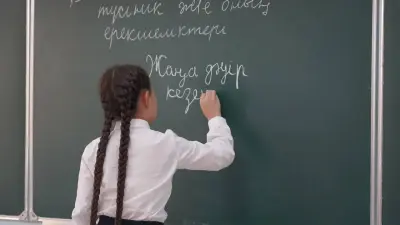 түсінік және оның
ерекшеліктері
Жаңа дәуір
кезең